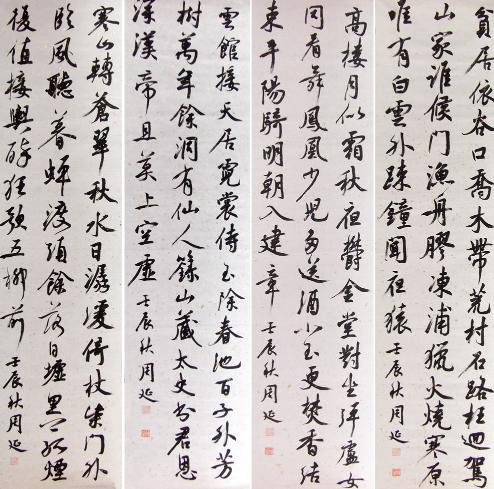 貧居依谷口喬木帶荒村石路枉迴駕
山家誰候門漁舟膠凍浦獵火燒寒原
唯有白雲外疎鐘聞夜猿 壬辰秋周延
高樓月似霜秋夜鬱金堂對坐彈盧女
同看舞鳳凰少兒多送酒小玉更焚香結
束平陽騎明朝入建章 壬辰秋周延
雲館接天居霓裳侍玉除春池百子外芳
樹萬年餘洞有仙人籙山藏太史書君恩
深漢帝且莫上空虛 壬辰秋周延
寒山轉蒼翠秋水日潺湲倚杖柴門外
臨風聽暮蟬渡頭餘落日墟里上孤煙
復值接輿醉狂歌五柳前 壬辰秋周延